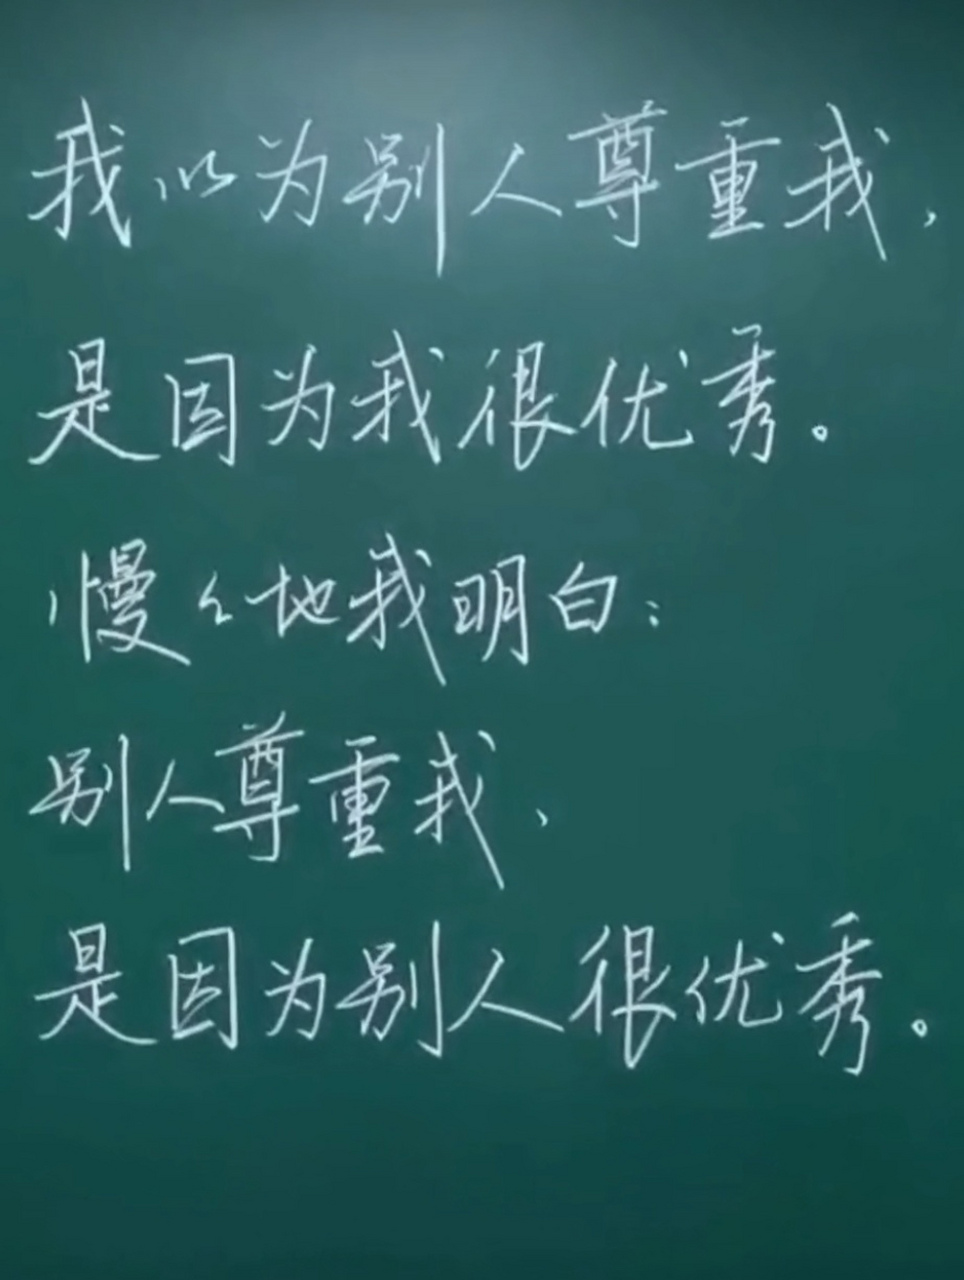 我以为别人尊重我,
是因为我很优秀。
慢々地我明白:
别人尊重我、
是因为别人很优秀。